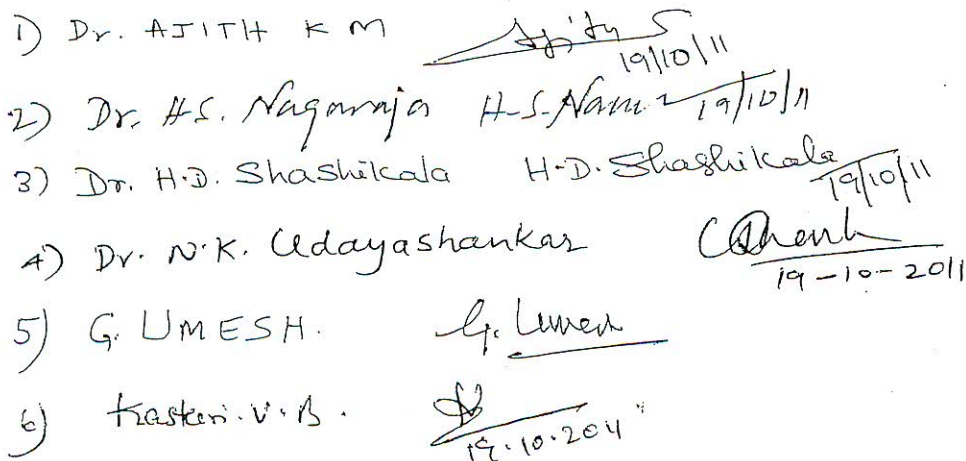 1) Dr. AJITH K M Ajith 19/10/11
2) Dr. H.S. Nagaraja H-S. 19/10/11
3) Dr. H.D. Shashikala H-D. Shashikala 19/10/11
4) Dr. N.K. Udayashankar 19-10-2011
5) G. UMESH. G. Umesh
6) V.B. 19.10.2011